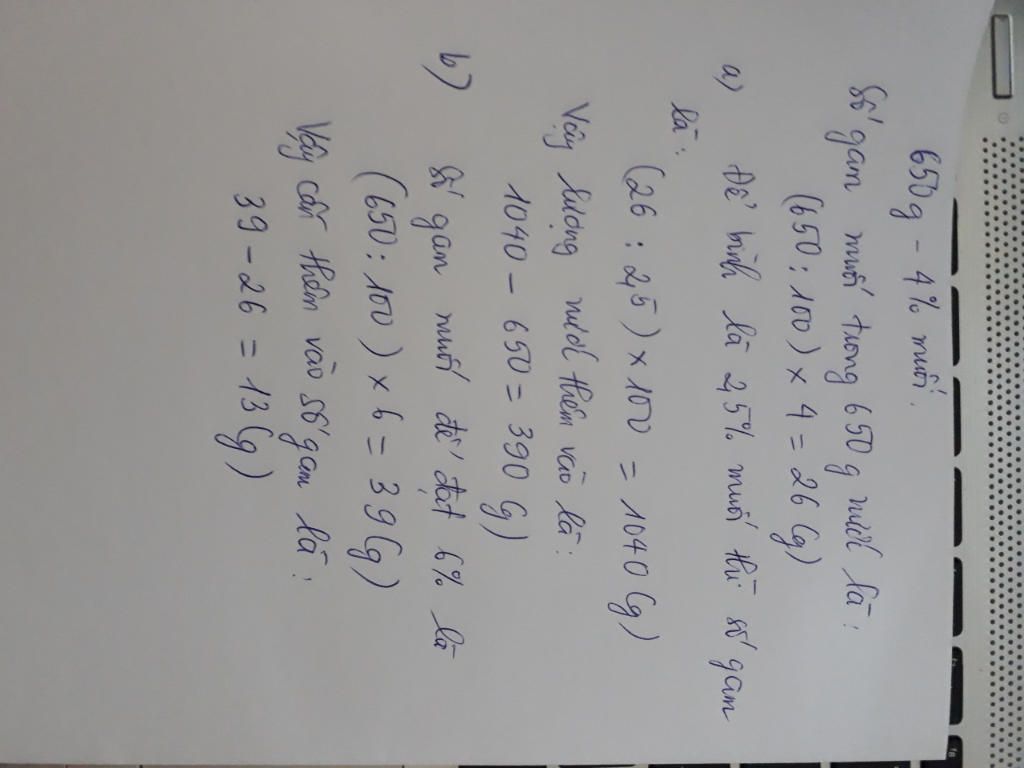 650g - 4% muối.
Số gam muối trong 650g nước là:
(650:100) x 4 = 26 (g)
a) Để bình là 2,5% muối thì số gam
là:
(26 : 2,5) x 100 = 1040 (g)
Vậy lượng nước thêm vào là:
1040 - 650 = 390 (g)
b) Số gam muối để đạt 6% là
(650:100) x 6 = 39 (g)
Vậy cần thêm vào số gam là:
39 - 26 = 13 (g)